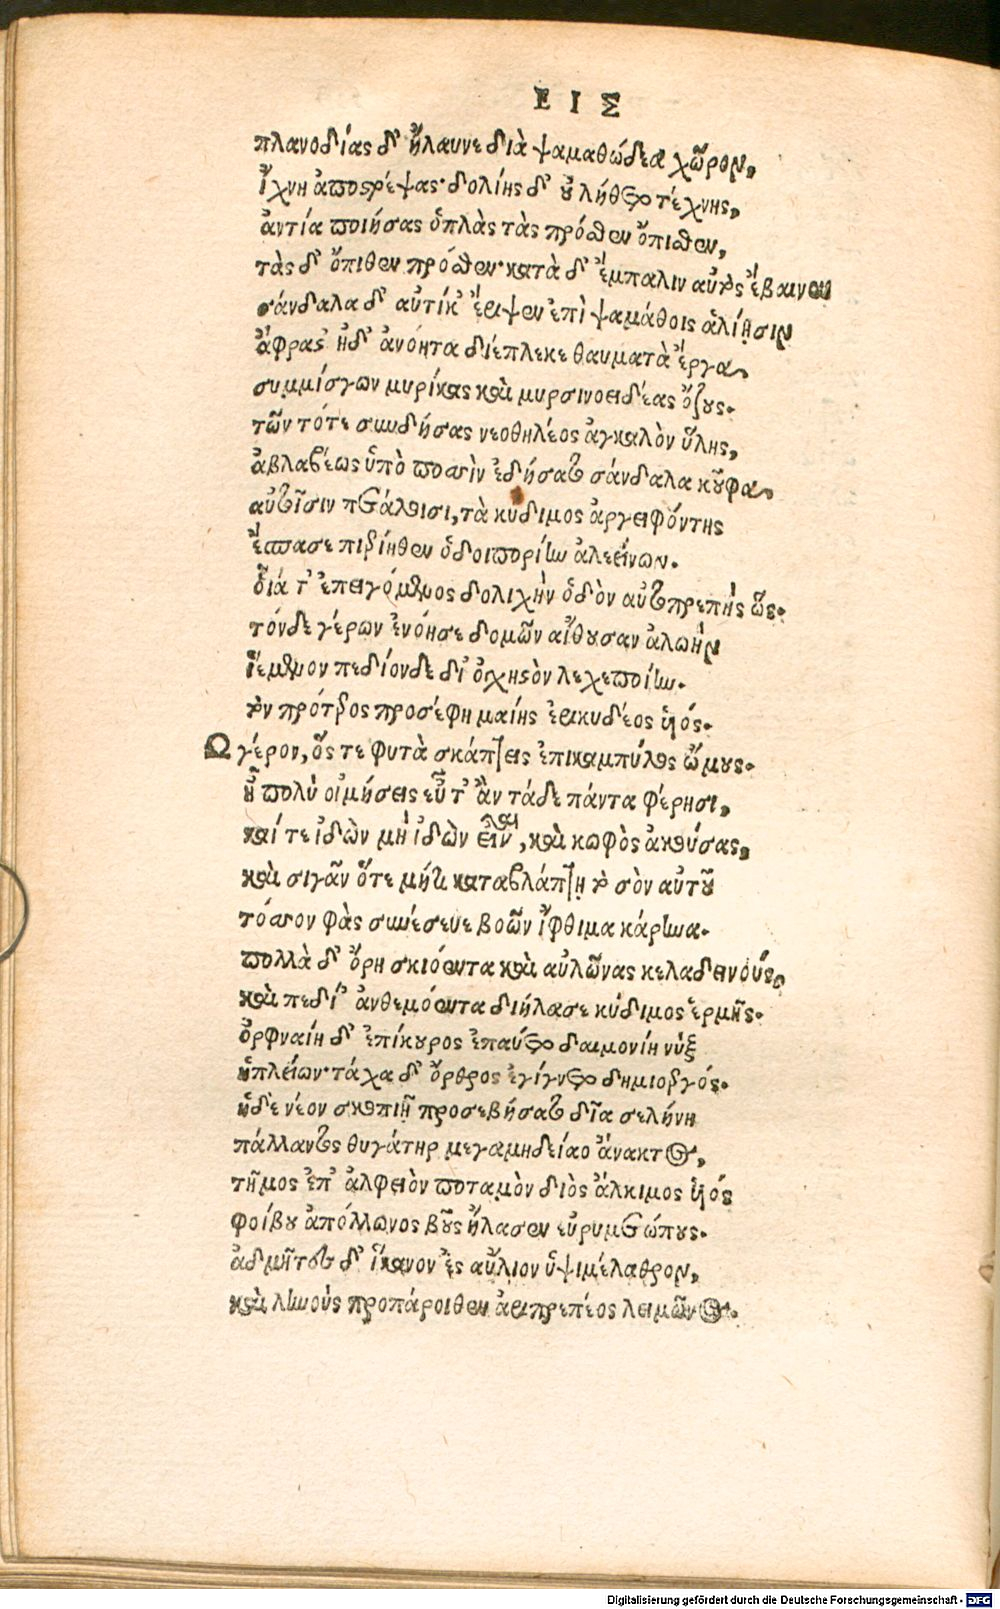 ΕΙΣ
πλανοδίας δ' ἤλαυνε διὰ ψαμαθώδεα χῶρον,
ἴχνη ἀποστρέψας· δολίης δ' οὐ λήθετο τέχνης,
ἀντία ποιήσας ὁπλὰς τὰς πρόσθεν ὄπισθεν,
τὰς δ' ὄπιθεν πρόσθεν· κατὰ δ' ἔμπαλιν αὐτὸς ἔβαινεν
σάνδαλα δ' αὐτίκ' ἔριψεν ἐπὶ ψαμάθοις ἁλίῃσιν
ἄφρας' ἠδ' ἀνόητα διέπλεκε θαυματὰ ἔργα,
συμμίσγων μυρίκας καὶ μυρσινοειδέας ὄζους.
τῶν τότε συνδήσας νεοθηλέος ἀγκαλὸν ὕλης,
ἀβλαβέως ὑπὸ ποσσὶν ἐδήσατο σάνδαλα κοῦφα,
αὐτοῖσιν πετάλοισι, τὰ κύδιμος ἀργειφόντης
ἔσπασε πιερίηθεν ὁδοιπορίην ἀλεείνων.
οἷά τ' ἐπειγόμενος δολιχὴν ὁδὸν αὐτοπρεπὴς ὥς.
τόνδε γέρων ἐνόησε δομῶν αἴθουσαν ἀλωὴν
ἱέμενον πεδίονδε δι' ὀγχηστὸν λεχεποίην.
τὸν πρότερος προσέφη μαίης ἐρικυδέος υἱός.
Ω γέρον, ὅς τε φυτὰ σκάπτεις ἐπικαμπύλος ὤμους.
ἦ πολὺ οἰμήσεις εὖτ' ἂν τάδε πάντα φέρησι,
καί τε ἰδὼν μὴ ἰδὼν εἶν, καὶ κωφὸς ἀκούσας,
καὶ σιγᾶν ὅτε μήτι καταβλάπτῃ τὸ σὸν αὐτοῦ
τόσσον φὰς συνέσευε βοῶν ἴφθιμα κάρηνα.
πολλὰ δ' ὄρη σκιόεντα καὶ αὐλῶνας κελαδεινούς,
καὶ πεδί' ἀνθεμόεντα διήλασε κύδιμος ἑρμῆς.
ὀρφναίη δ' ἐπίκουρος ἐπαύετο δαιμονίη νὺξ
ἡ πλείων· τάχα δ' ὄρθρος ἐγίγνετο δημιοεργός.
ἡ δὲ νέον σκοπιῇ προσεβήσατο δῖα σελήνη
πάλλαντος θυγάτηρ μεγαμηδείαο ἄνακτος,
τῆμος ἐπ' ἀλφειὸν ποταμὸν διὸς ἄλκιμος υἱός
φοίβου ἀπόλλωνος βοῦς ἤλασεν εὐρυμετώπους.
ἀδμῆτοι δ' ἵκανον ἐς αὔλιον ὑψιμέλαθρον,
καὶ ληνοὺς προπάροιθεν ἀριπρεπέος λειμῶνος.
Digitalisierung gefördert durch die Deutsche Forschungsgemeinschaft - DFG